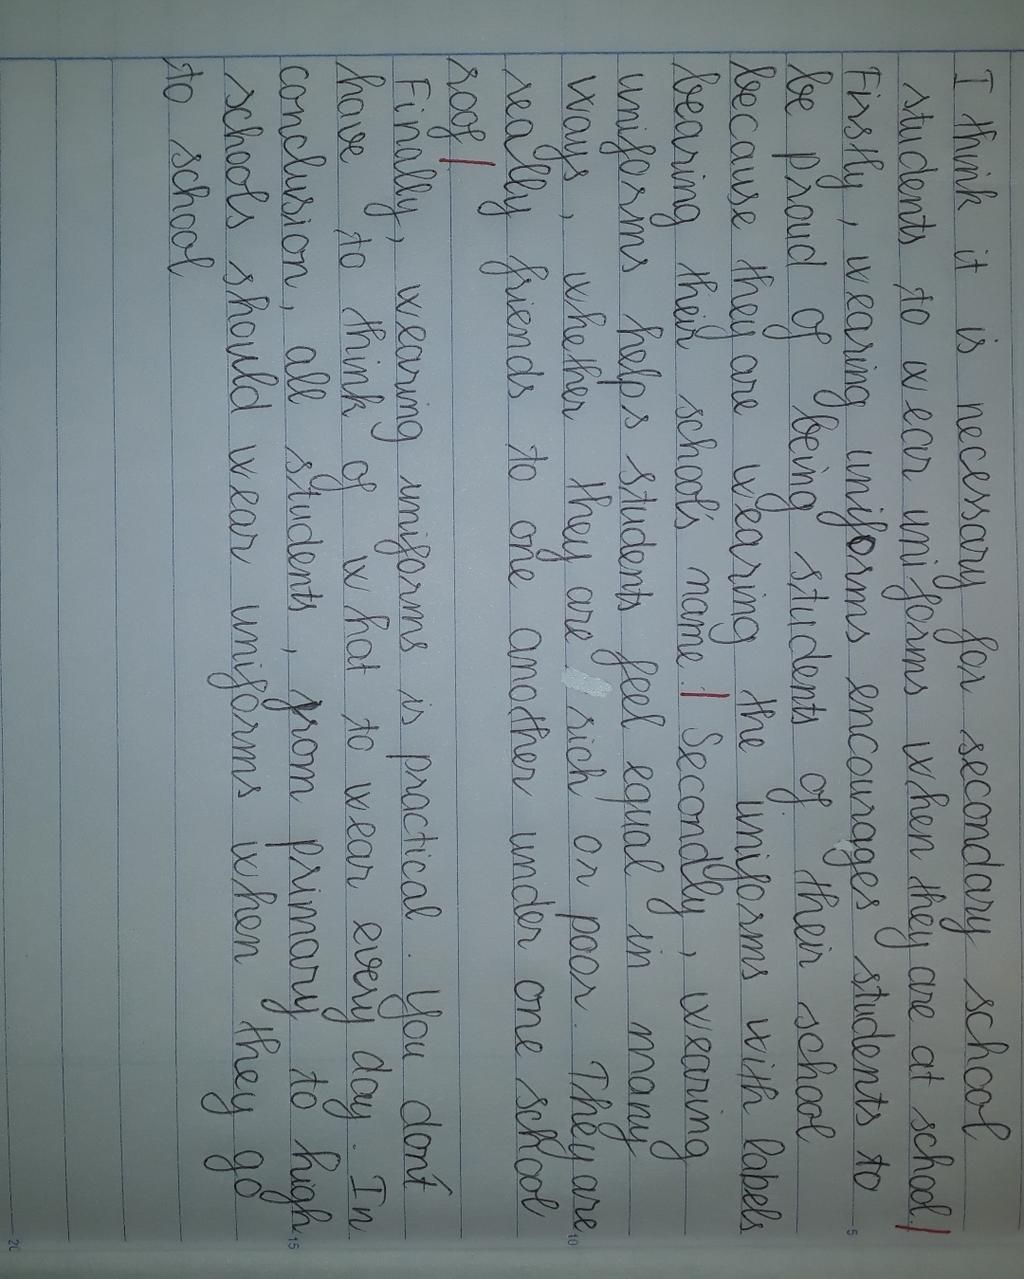 I think it is necessary for secondary school
students to wear uniforms when they are at school.
Firstly, wearing uniforms encourages students to
be proud of being students of their school
because they are wearing the uniforms with labels
bearing their school's name. Secondly, wearing
uniforms helps students feel equal in many
ways, whether they are rich or poor. They are
really friends to one another under one school
roof
Finally, wearing uniforms is practical. You don't
have to think of what to wear every day. In
conclusion, all students, from primary to high
schools should wear uniforms when they go
to school
5
10
15
20